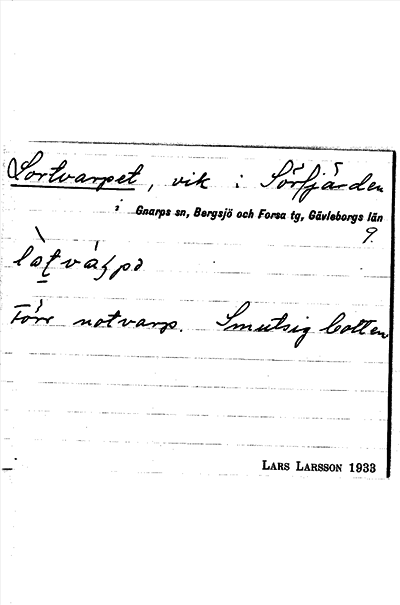 Lortvarpet, vik i Sörfjärden
i Gnarps sn, Bergsjö och Forsa tg, Gävleborgs län
9.
Förr notvarp. Smutsig botten
LARS LARSSON 1933